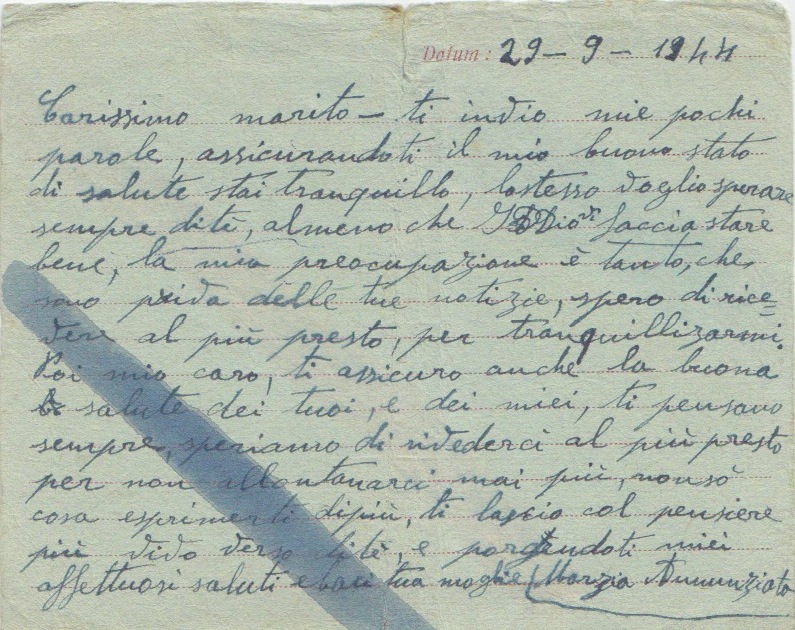 Datum: 29 - 9 - 1944
Carissimo marito - ti invio mie pochi
parole, assicurandoti il mio buono stato
di salute stai tranquillo, lostesso voglio sperare
sempre ditè, almeno che Dio faccia stare
bene, la mia preocupazione è tanto, che
sono priva delle tue notizie, spero di rice=
vere al più presto, per tranquillizarmi.
Poi mio caro, ti assicuro anche la buona
salute dei tuoi, e dei miei, ti pensavo
sempre, speriamo di rivederci al più presto
per non allontanarci mai più, non sò
cosa esprimerti dipiù, ti lascio col pensiere
più vivo verso ditè, e porgendoti miei
affettuosi saluti e baci tua moglie Marzia Annunziata